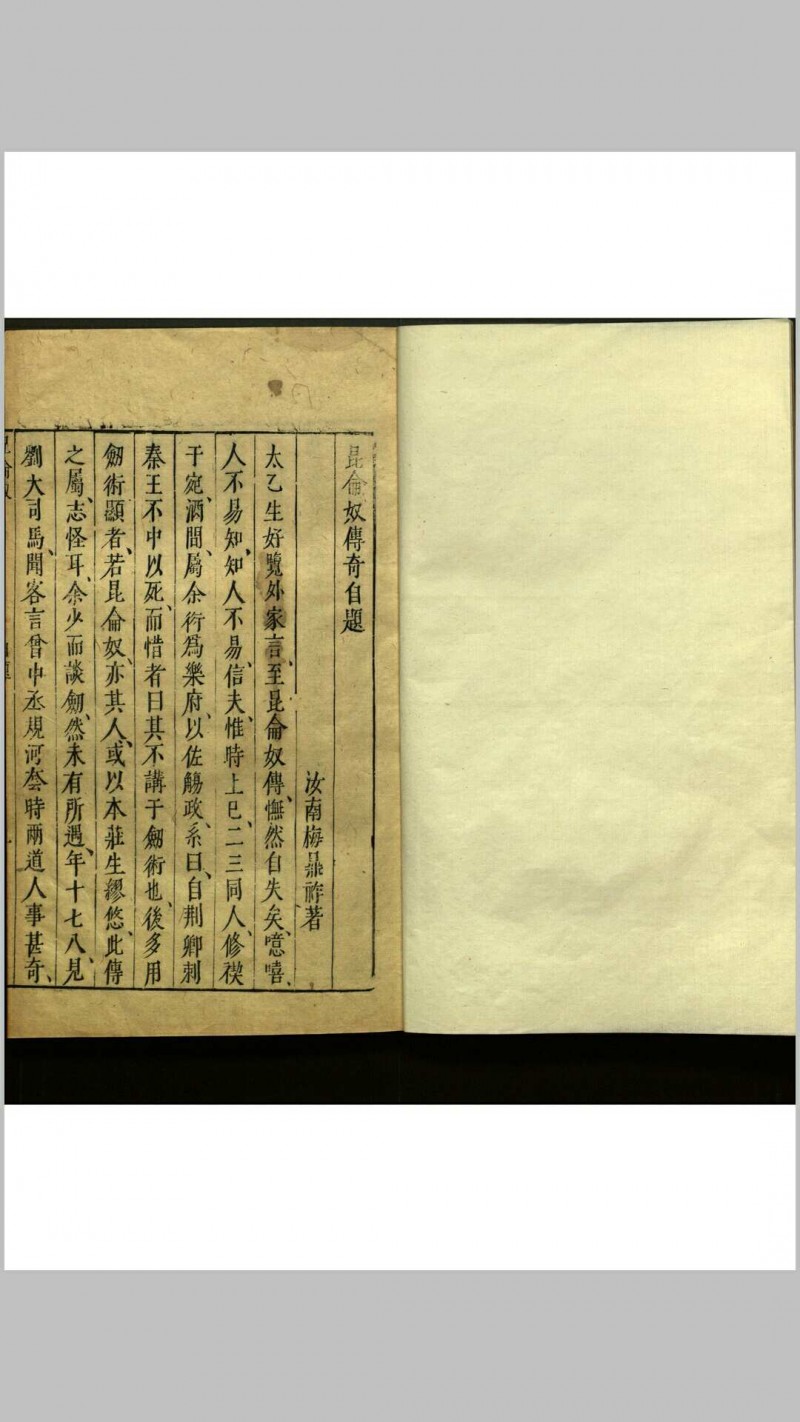 昆侖奴傳奇自題
汝南梅鼎祚著
太乙生好覽外家言、至昆侖奴傳、憮然自失矣、噫嘻、
人不易知、知人不易、信夫、惟時上巳、二三同人、修禊
于宛、酒間、屬余衍爲樂府、以佐觴政、系曰、自荆卿刺
秦王不中以死、而惜者曰其不講于劒術也、後多用
劒術顯者、若昆侖奴、亦其人、或以本莊生繆悠、此傳
之屬、志怪耳、余少而談劒、然未有所遇、年十七八、見、
劉大司馬、聞客言曾中丞規河套時兩道人事甚奇、